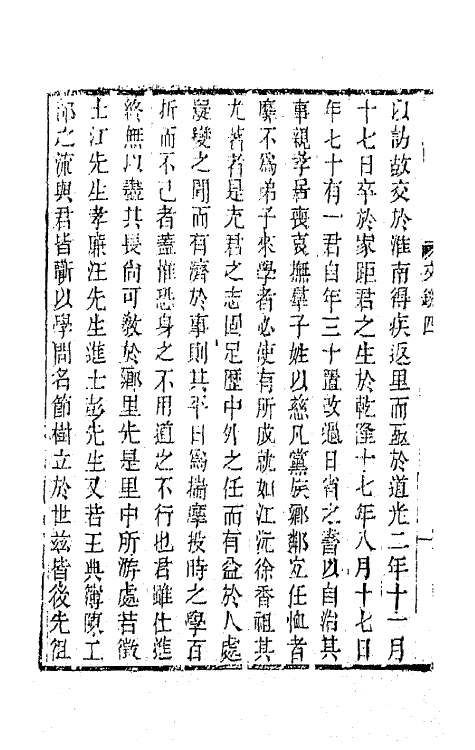 以訪故交於淮南得疾返里而亟於道光二年十一月
十七日卒於家距君之生於乾隆十七年八月十七日
年七十有一君自年三十置改過日省之書以自治其
事親孝居喪哀撫羣子姓以慈凡黨族鄉鄰宜任恤者
靡不爲弟子來學者必使有所成就如江沅徐香祖其
尤著者是充君之志固足歷中外之任而有益於人處
疑變之間而有濟於事則其平日爲揣摩投時之學百
折而不已者蓋惟恐身之不用道之不行也君雖仕進
終無以盡其長尙可敎於鄉里先是里中所游處若徵
士江先生孝廉汪先生進士彭先生又若王典簿陳工
部之流與君皆蘄以學問名節樹立於世茲皆後先徂
文錄四
一